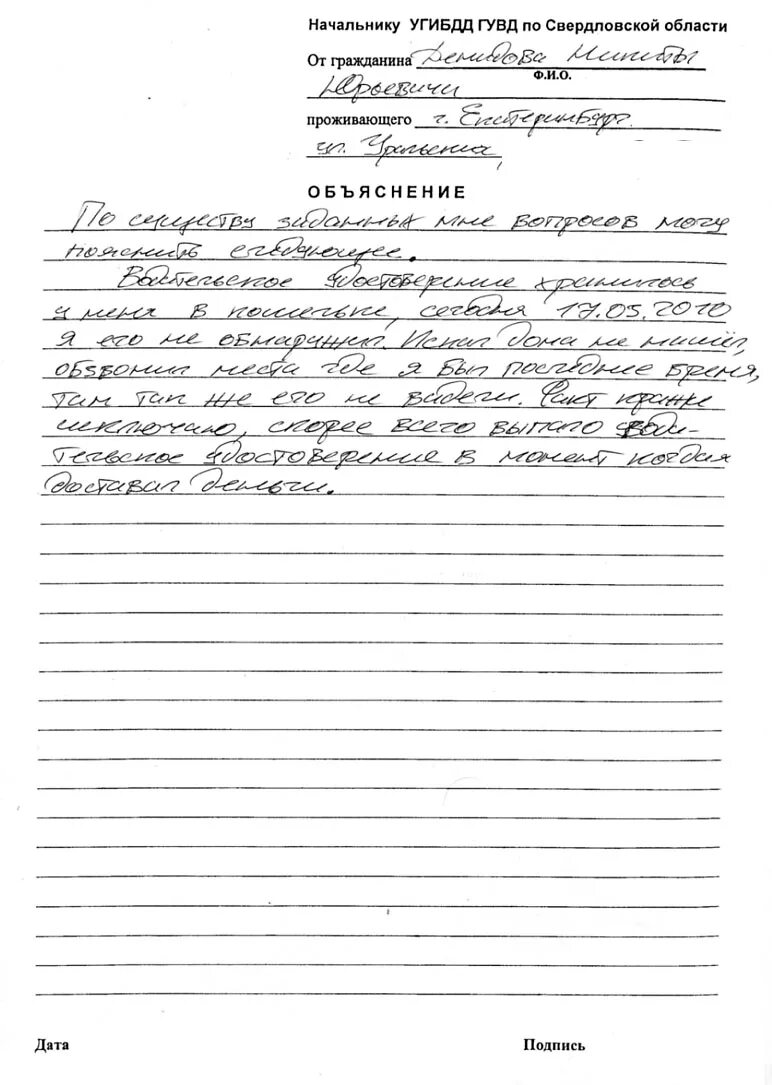 Начальнику УГИБДД ГУВД по Свердловской области
От гражданина Демидова Никиты
Ф.И.О.
Юрьевича
проживающего г. Екатеринбург.
ул. Уральская,
ОБЪЯСНЕНИЕ
По существу заданных мне вопросов могу
пояснить следующее.
Водительское удостоверение хранилось
у меня в кошельке, сегодня 17.05.2010
Я его не обнаружил. Искал дома не нашёл,
обзвонил места где я был последнее время,
там так же его не видели. Факт кражи
исключаю, скорее всего выпало води-
тельское удостоверение в момент когда я
доставал деньги.
Дата Подпись